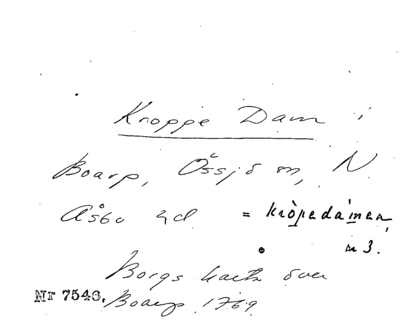 Kroppe Dam i
Boarp, Össjö sn, N.
Åsbo hd = kròpedámen,
n 3.
Borgs karta över
Nr 7546. Boarp 1769